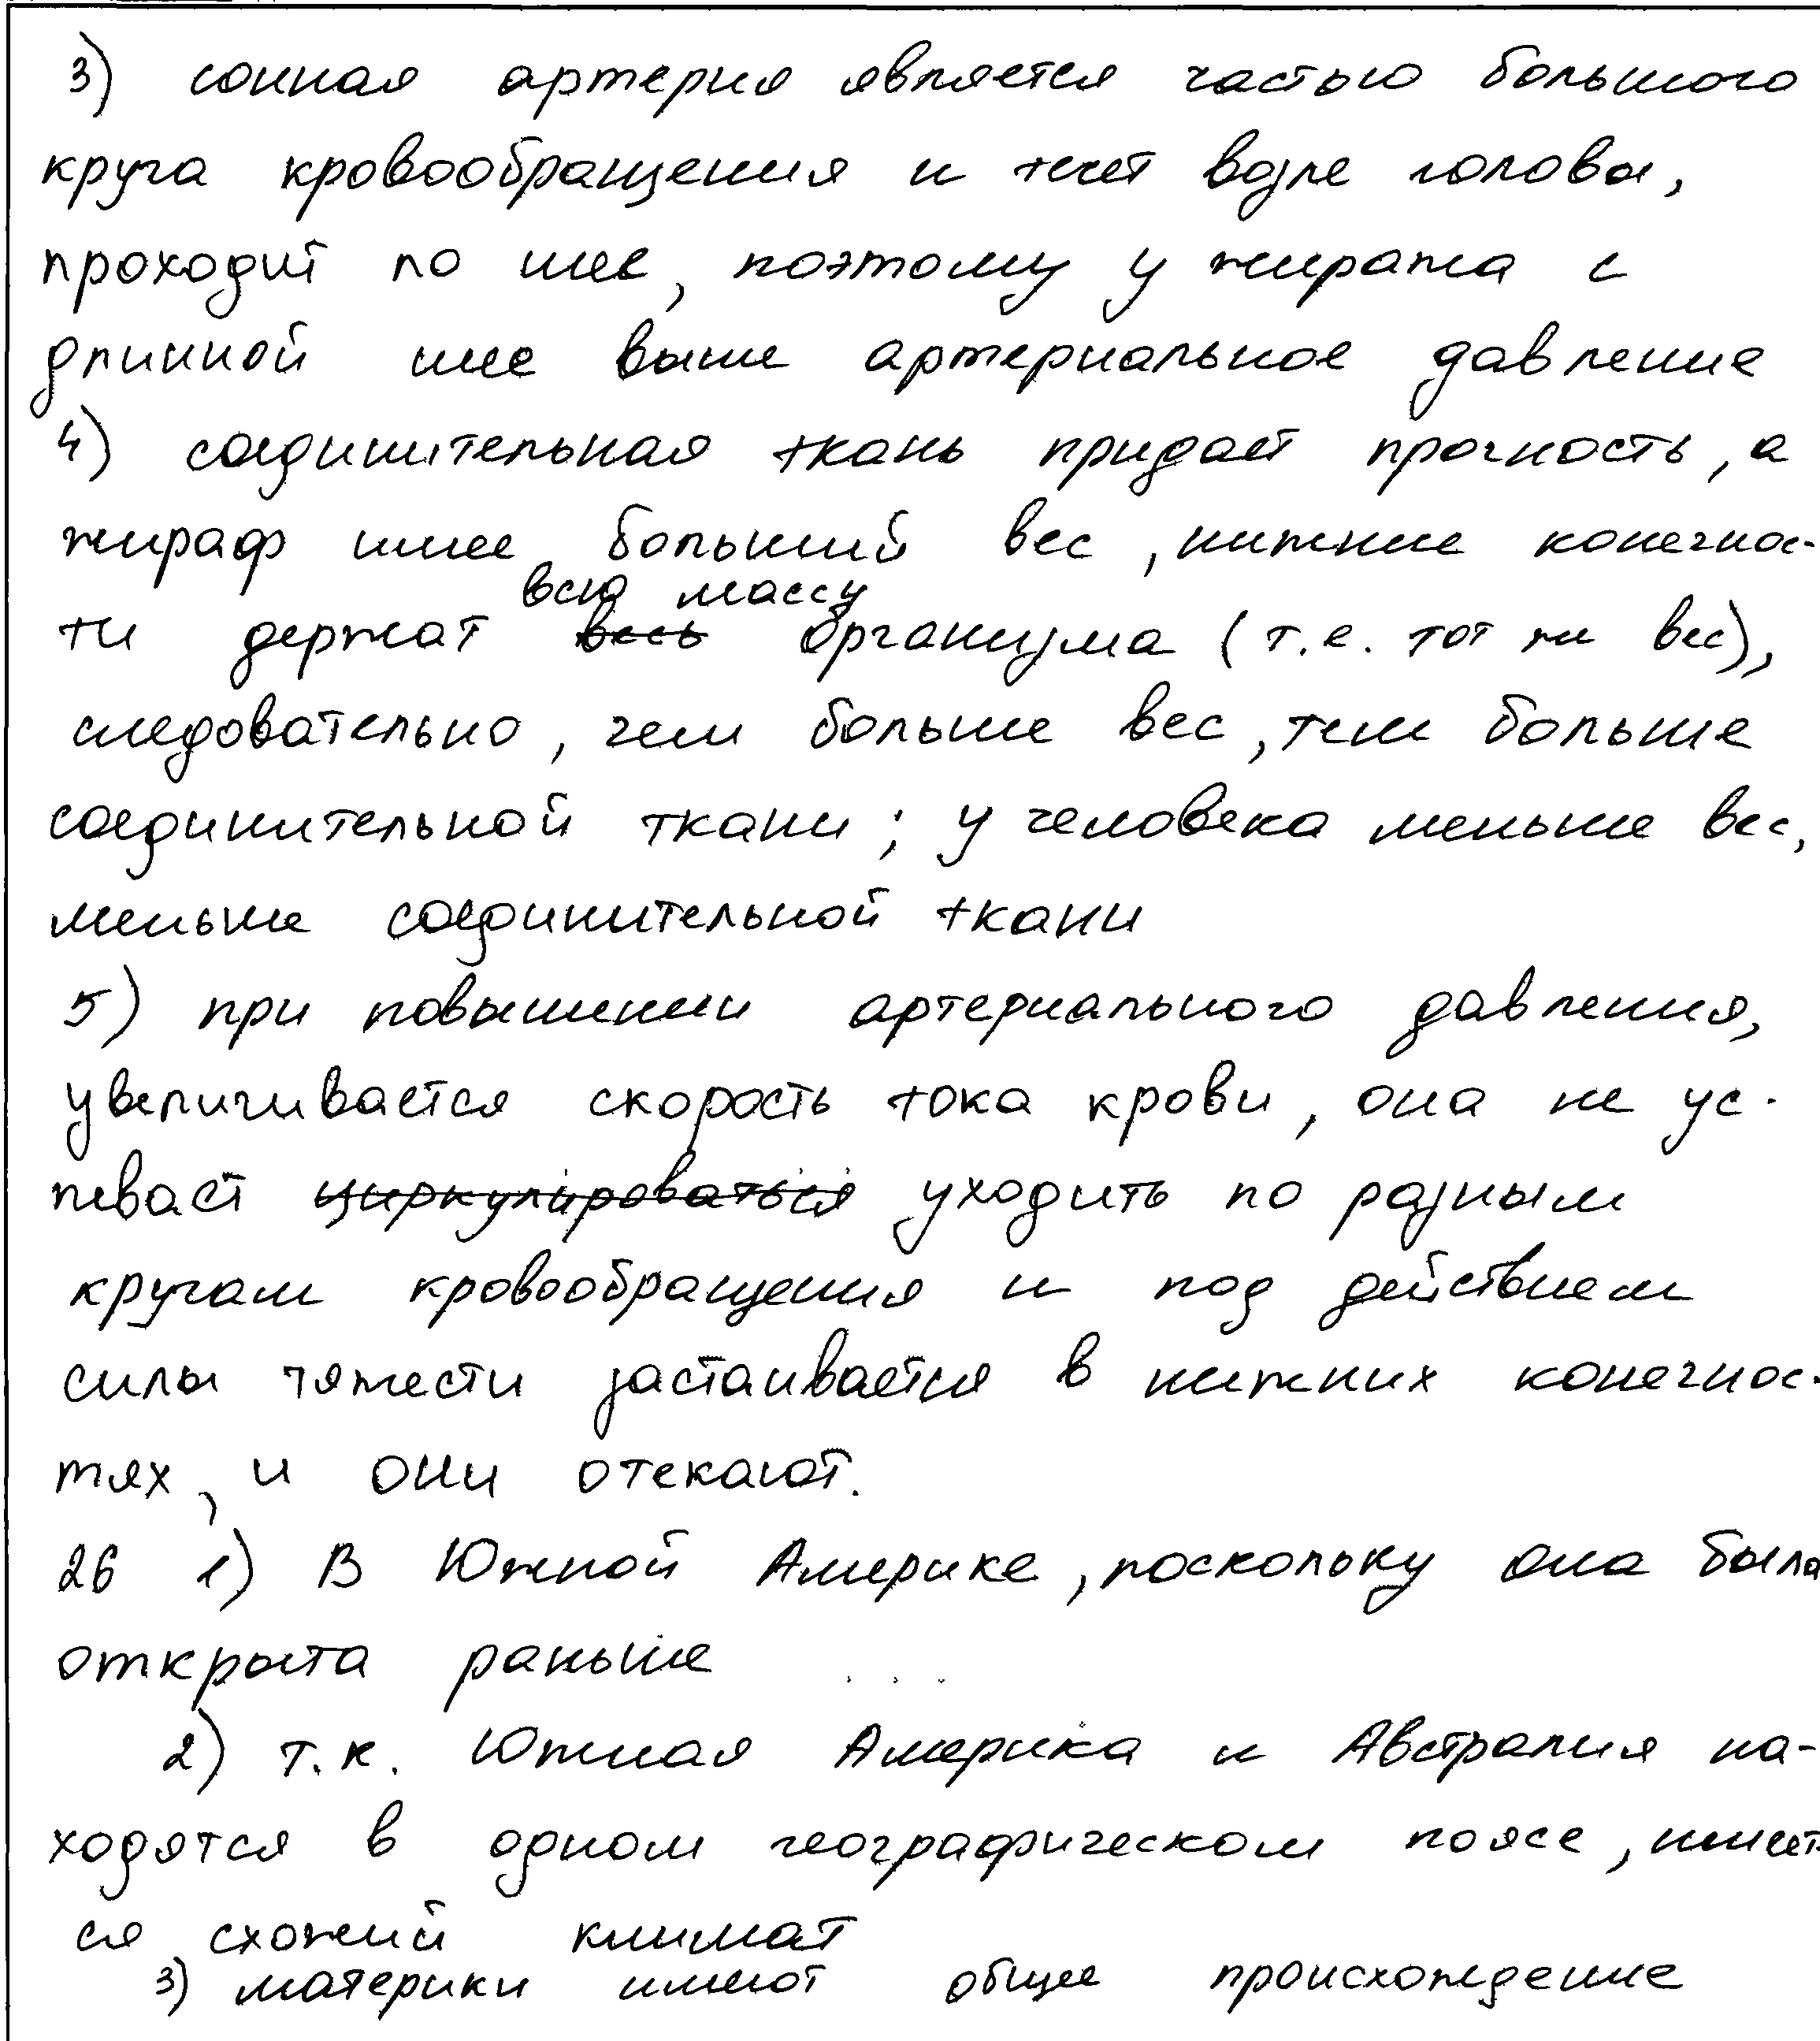 3) сонная артерия является частью большого
круга кровообращения и течет возле головы,
проходит по шее, поэтому у жирафа с
длинной шее выше артериальное давление
4) соединительная ткань придает прочность, а
жираф имее больший вес, нижние конечнос-
всю массу
ти держат весь организма (т.е. тот же вес),
следовательно, чем больше вес, тем больше
соединительной ткани; у человека меньше вес,
меньше соединительной ткани
5) при повышении артериального давления,
увеличивается скорость тока крови, она не ус-
певает циркулироваться уходить по разным
кругам кровообращения и под действием
силы тяжести застаивается в нижних конечнос-
тях, и они отекают.
26 1) В Южной Америке, поскольку она была
открыта раньше
2) т.к. Южная Америка и Австралия на-
ходятся в одном географическом поясе, имеет-
ся схожий климат
3) материки имеют общее происхождение